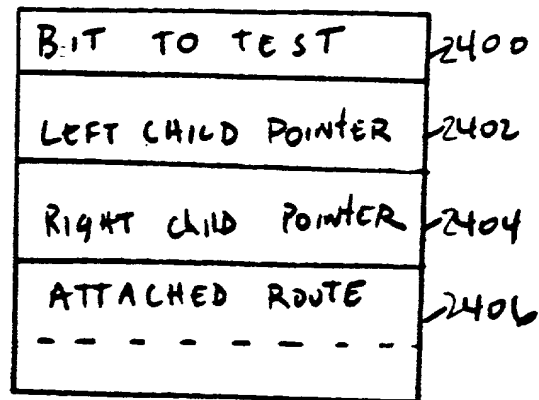 BIT TO TEST 2400
LEFT CHILD POINTER 2402
RIGHT CHILD POINTER 2404
ATTACHED ROUTE 2406